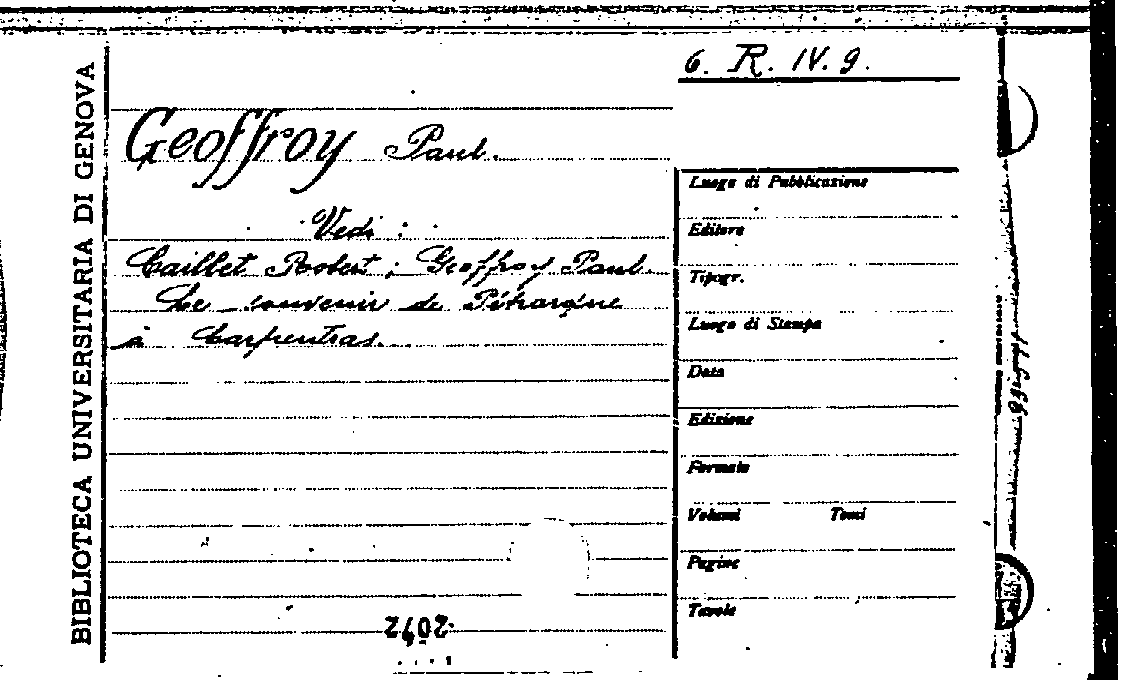 BIBLIOTECA UNIVERSITARIA DI GENOVA
6. R. IV. 9.
Geoffroy Paul.
Vedi :
Caillet Robert ; Geoffroy Paul.
Le souvenir de Pétrarque
à Carpentras.
Luogo di Pubblicazione
Editore
Tipogr.
Luogo di Stampa
Data
Edizione
Formato
Volumi Tomi
Pagine
Tavole